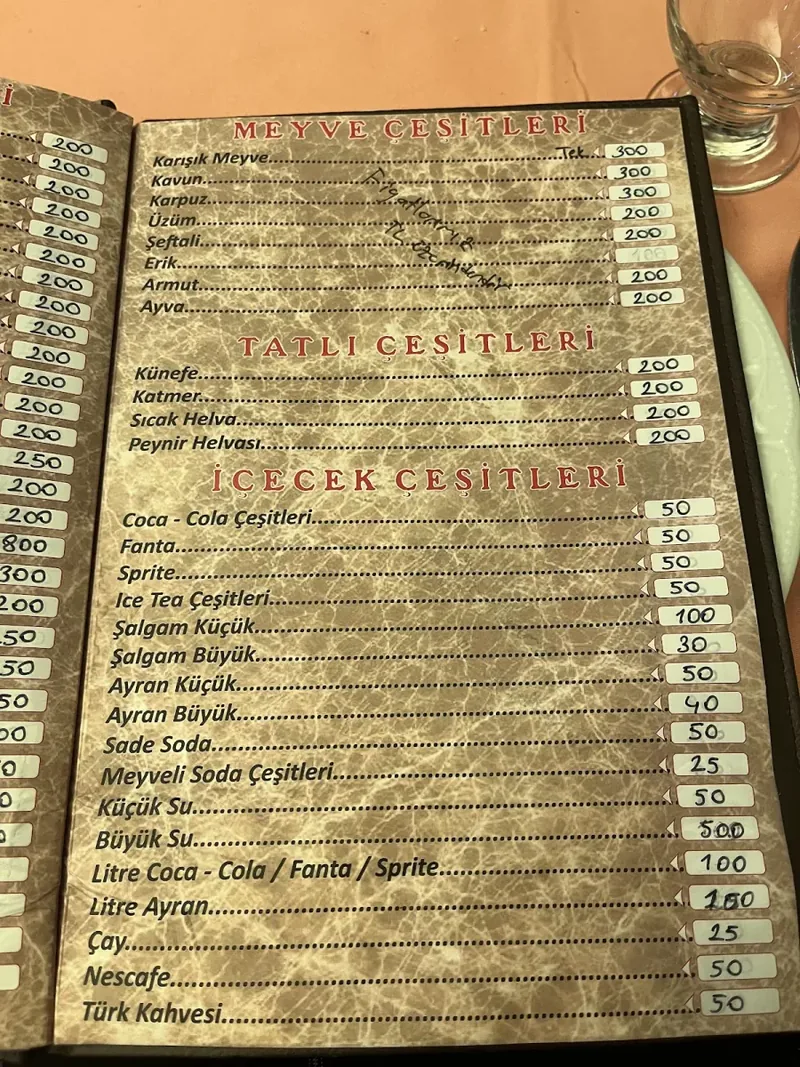 İ
200
200
200
200
200
200
200
200
200
200
200
200
200
250
200
200
800
300
200
MEYVE ÇEŞİTLERİ
Karışık Meyve Tek 300
Kavun 300
Karpuz 300
Üzüm 200
Şeftali 200
Erik 100
Armut 200
Ayva 200
Fiyatlarımız
TL Üzerindendir
TATLI ÇEŞİTLERİ
Künefe 200
Katmer 200
Sıcak Helva 200
Peynir Helvası 200
İÇECEK ÇEŞİTLERİ
Coca - Cola Çeşitleri 50
Fanta 50
Sprite 50
Ice Tea Çeşitleri 50
Şalgam Küçük 100
Şalgam Büyük 30
Ayran Küçük 50
Ayran Büyük 40
Sade Soda 50
Meyveli Soda Çeşitleri 25
Küçük Su 50
Büyük Su 500
Litre Coca - Cola / Fanta / Sprite 100
Litre Ayran
Çay 25
Nescafe 50
Türk Kahvesi 50